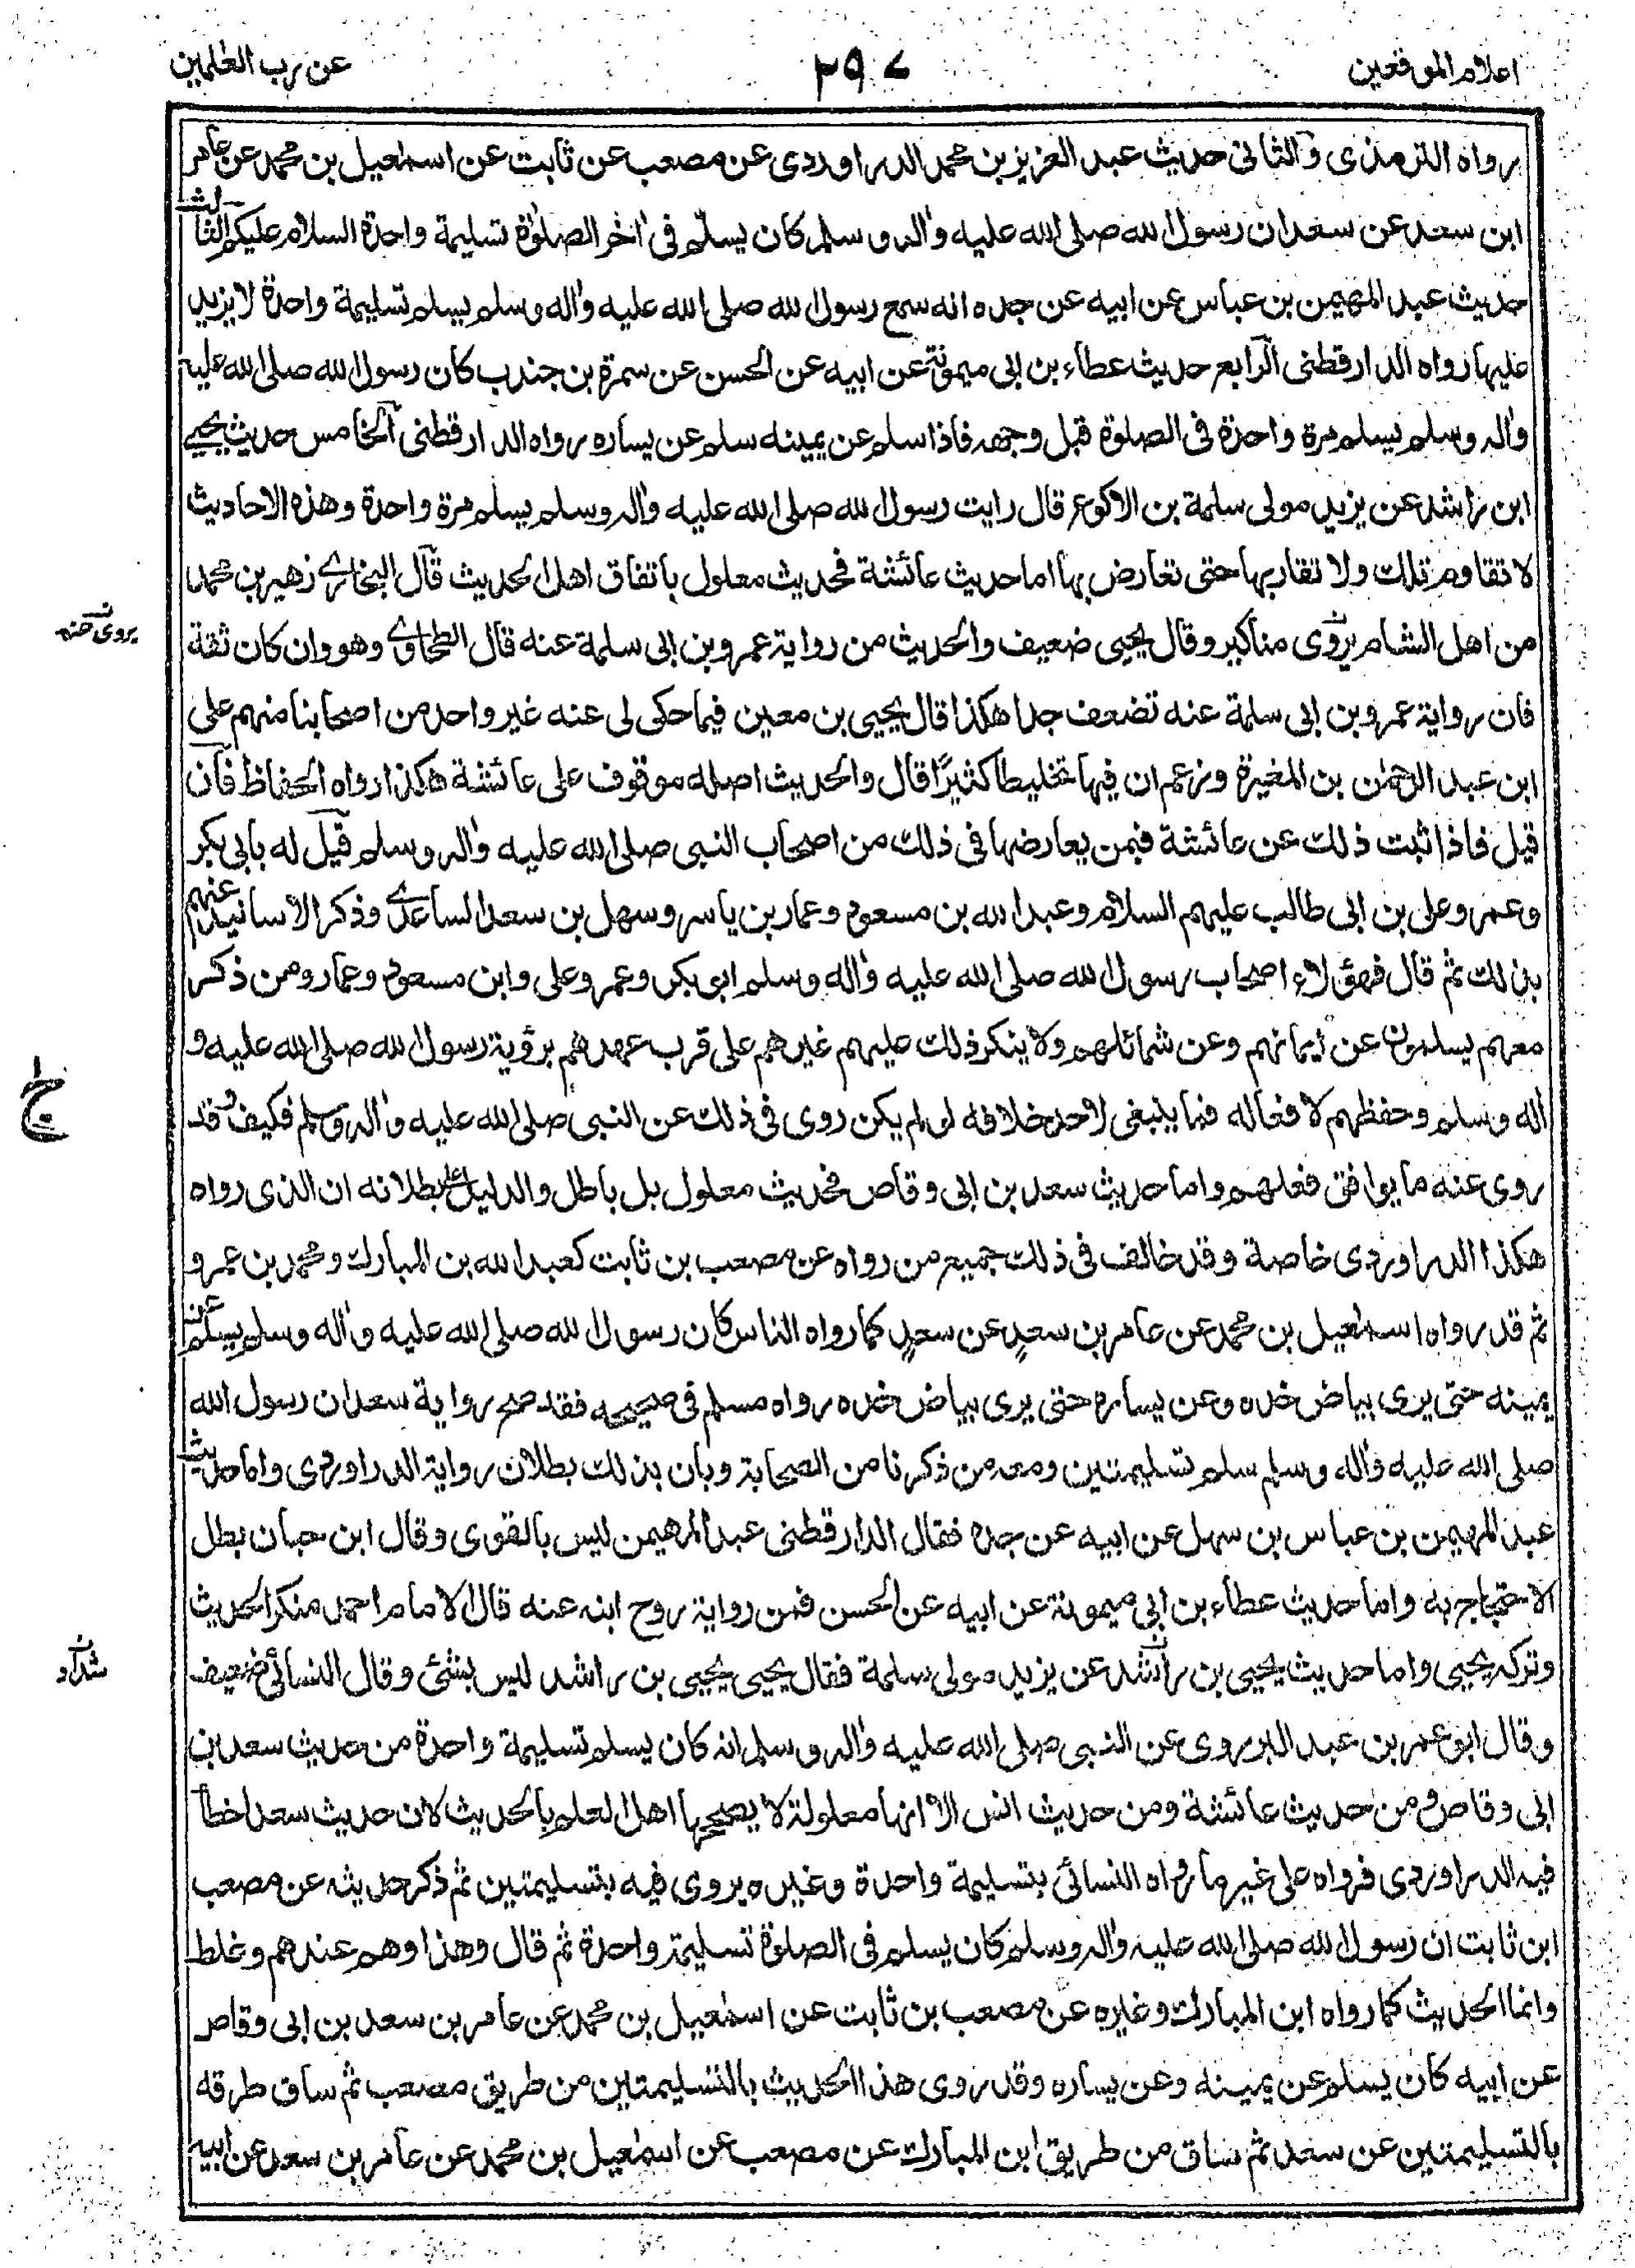 اعلام الموقعين
٢٩٧
عن رب العٰلمين
رواه الترمذى والثانى حديث عبد العزيز بن محمد الدراوردى عن مصعب عن ثابت عن اسمٰعيل بن محمد عن عامر
ابن سعد عن سعد ان رسول الله صلى الله عليه واٰله وسلم كان يسلّم فى اٰخر الصلوٰة تسليمة واحدة السلام عليكم الثالث
حديث عبد المهيمن بن عباس عن ابيه عن جده انه سمع رسول الله صلى الله عليه واٰله وسلم يسلم تسليمة واحدة لا يزيد
عليها رواه الدارقطنى الرابع حديث عطاء بن ابى ميمونة عن ابيه عن الحسن عن سمرة بن جندب كان رسول الله صلى الله عليه
واٰله وسلم يسلم مرة واحدة فى الصلوة قبل وجهه فاذا سلم عن يمينه سلم عن يساره رواه الدارقطنى الخامس حديث يحيى
ابن راشد عن يزيد مولى سلمة بن الاكوع قال رايت رسول الله صلى الله عليه واٰله وسلم يسلم مرة واحدة وهذه الاحاديث
لا تقاوم تلك ولا تقاربها حتى تعارض بها اما حديث عائشة فحديث معلول باتفاق اهل الحديث قال البخارى زهير بن محمد
من اهل الشام يروى مناكير وقال يحيى ضعيف والحديث من رواية عمرو بن ابى سلمة عنه قال الطحاوى وهو وان كان ثقة
يروى عنه
فان رواية عمرو بن ابى سلمة عنه تضعف جدا هكذا قال يحيى بن معين فيما حكى لى عنه غير واحد من اصحابنا منهم على
ابن عبد الرحمٰن بن المغيرة وزعم ان فيها تخليطا كثيرًا قال والحديث اصله موقوف على عائشة هكذا رواه الحفاظ فان
قيل فاذا ثبت ذلك عن عائشة فبمن يعارضها فى ذلك من اصحاب النبى صلى الله عليه واٰله وسلم قيل له بابى بكر
وعمر وعلى بن ابى طالب عليهم السلام وعبد الله بن مسعود وعمار بن ياسر وسهل بن سعد الساعدى وذكر الاسانيد عنهم
بذلك ثم قال فهؤلاء اصحاب رسول الله صلى الله عليه واٰله وسلم ابى بكر وعمر وعلى وابن مسعود وعمار ومن ذكر
معهم يسلمون عن ايمانهم وعن شمائلهم ولا ينكر ذلك عليهم غيرهم على قرب عهدهم برؤية رسول الله صلى الله عليه و
اٰله وسلم وحفظهم لافعاله فما ينبغى لاحد خلافه لو لم يكن روى فى ذلك عن النبى صلى الله عليه واٰله وسلم فكيف وقد
روى عنه ما يوافق فعلهم واما حديث سعد بن ابى وقاص فحديث معلول بل باطل والدليل على بطلانه ان الذى رواه
هكذا الدراوردى خاصة وقد خالف فى ذلك جميع من رواه عن مصعب بن ثابت كعبد الله بن المبارك ومحمد بن عمرو
ثم قد رواه اسمٰعيل بن محمد عن عامر بن سعدٍ عن سعدٍ كما رواه الناس كان رسول الله صلى الله عليه واٰله وسلم يسلم عن
يمينه حتى يرى بياض خده وعن يساره حتى يرى بياض خده رواه مسلم فى صحيحه فقد صح رواية سعد ان رسول الله
صلى الله عليه واٰله وسلم سلم تسليمتين ومعه من ذكرنا من الصحابة وبان بذلك بطلان رواية الدراوردى واما حديث
عبد المهيمن بن عباس بن سهل عن ابيه عن جده فقال الدارقطنى عبد المهيمن ليس بالقوى وقال ابن حبان بطل
الاحتجاج به واما حديث عطاء بن ابى ميمونة عن ابيه عن الحسن فمن رواية روح ابنه عنه قال الامام احمد منكر الحديث
وتركه يحيى واما حديث يحيى بن راشد عن يزيد مولى سلمة فقال يحيى يحيى بن راشد ليس بشئ وقال النسائى ضعيف
شداد
وقال ابو عمر بن عبد البر روى عن النبى صلى الله عليه واٰله وسلم انه كان يسلم تسليمة واحدة من حديث سعد بن
ابى وقاص ومن حديث عائشة ومن حديث انس الا انها معلولة لا يصححها اهل العلم بالحديث لان حديث سعد اخطأ
فيه الدراوردى فرواه على غير ما رواه النسائى بتسليمة واحدة وغيره يروى فيه بتسليمتين ثم ذكر حديثه عن مصعب
ابن ثابت ان رسول الله صلى الله عليه واٰله وسلم كان يسلم فى الصلوة تسليمة واحدة ثم قال وهذا وهم عندهم وغلط
وانما الحديث كما رواه ابن المبارك وغيره عن مصعب بن ثابت عن اسمٰعيل بن محمد عن عامر بن سعد بن ابى وقاص
عن ابيه كان يسلم عن يمينه وعن يساره وقد روى هذا الحديث بالتسليمتين من طريق مصعب ثم ساق طرقه
بالتسليمتين عن سعد ثم ساق من طريق ابن المبارك عن مصعب عن اسمٰعيل بن محمد عن عامر بن سعد عن ابيه